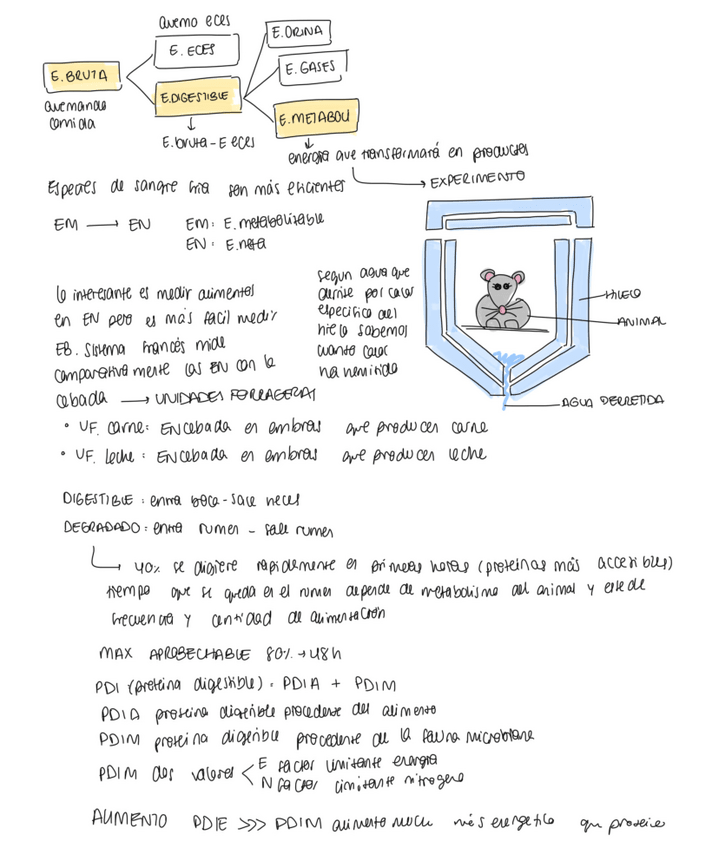 quemo eces
E. ECES
E. ORINA
E. GASES
E. BRUTA
E.DIGESTIBLE
E.METABOLI
quemando
comida
E.bruta - E eces
energia que transformará en productos
EXPERIMENTO
Especies de sangre fria son más eficientes
EM → EN
EM: E.metabolitzable
EN: E.neta
lo interesante es medir alimentos
en EN pero es más facil medir
EB. Sistema francés mide
comparativamente las EN con la
cebada → UNIDADES FORRAGERAS
segun agua que
derrite por calor
especifico del
hielo sabemos
cuanto calor
ha hemitido
HIELO
ANIMAL
AGUA DERRETIDA
• UF. carne: EN cebada en embras que producen carne
• UF. leche: EN cebada en embras que producen leche
DIGESTIBLE: entra boca - sale heces
DEGRADADO: entra rumen - sale rumen
40% se digiere rapidamente en primeras horas (proteinas más accesibles)
tiempo que se queda en el rumen depende de metabolismo del animal y este de
frecuencia y cantidad de alimentación
MAX APROBECHABLE 80% → 48h
PDI (proteina digestible) = PDIA + PDIM
PDIA proteina digerible procedente del alimento
PDIM proteina digerible procedente de la fauna microbiana
PDIM dos valores < E factor limitante energia
N factor limitante nitrogeno
AUMENTO PDIE >>> PDIM alimento más energetico que proteico